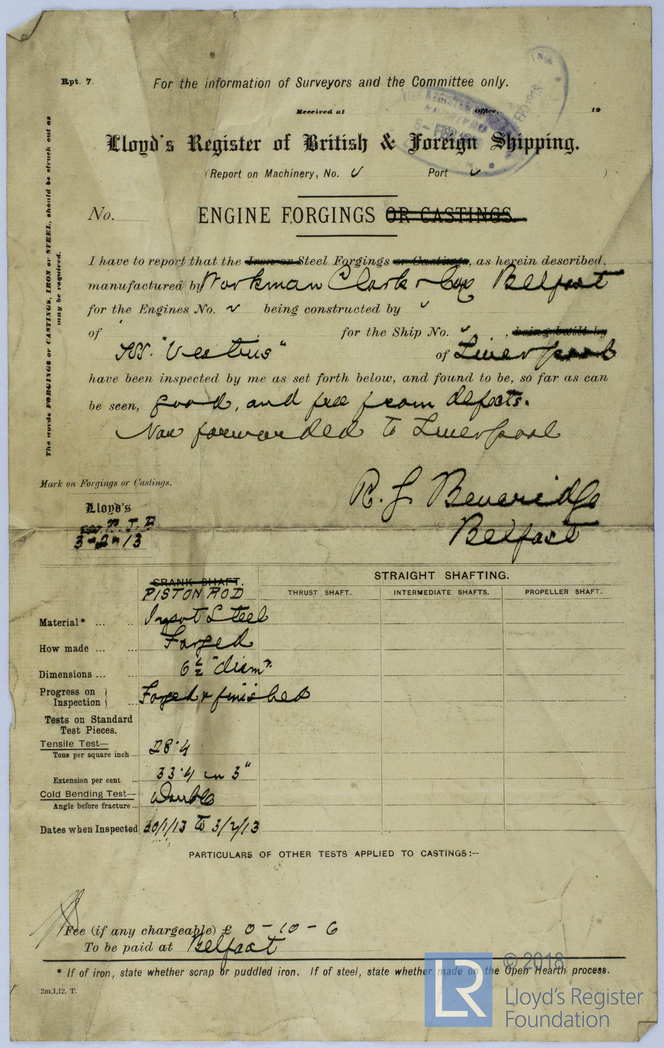 Rpt. 7.
For the information of Surveyors and the Committee only.
Received at Office, 19
Lloyd's Register of British & Foreign Shipping.
(Report on Machinery, No. Port )
The words FORGINGS or CASTINGS, IRON or STEEL, should be struck out as
may be required.
No. ENGINE FORGINGS OR CASTINGS.
I have to report that the Iron or Steel Forgings or Castings, as herein described,
manufactured by Workman Clark & Co Belfast
for the Engines No. being constructed by
of for the Ship No. , being built by
SS. "Vestris" of Liverpool
have been inspected by me as set forth below, and found to be, so far as can
be seen, good, and free from defects.
Now forwarded to Liverpool
Mark on Forgings or Castings.
R. J. Beveridge
Belfast
Lloyd's
3-2-13
CRANK SHAFT.
PISTON ROD
STRAIGHT SHAFTING.
THRUST SHAFT. INTERMEDIATE SHAFTS. PROPELLER SHAFT.
Material* ... Ingot Steel
How made ... Forged
Dimensions ... 6½" diam.
Progress on Inspection Forged & finished
Tests on Standard
Test Pieces.
Tensile Test—
Tons per square inch ... 28.4
Extension per cent 33.4 in 3"
Cold Bending Test—
Angle before fracture ... Double
Dates when Inspected 30/1/13 to 3/2/13
PARTICULARS OF OTHER TESTS APPLIED TO CASTINGS:—
Fee (if any chargeable) £ 0-10-6
To be paid at Belfast
* If of iron, state whether scrap or puddled iron. If of steel, state whether made on the Open Hearth process.
2m,1,12. T.
© 2018
LR
Lloyd's Register
Foundation